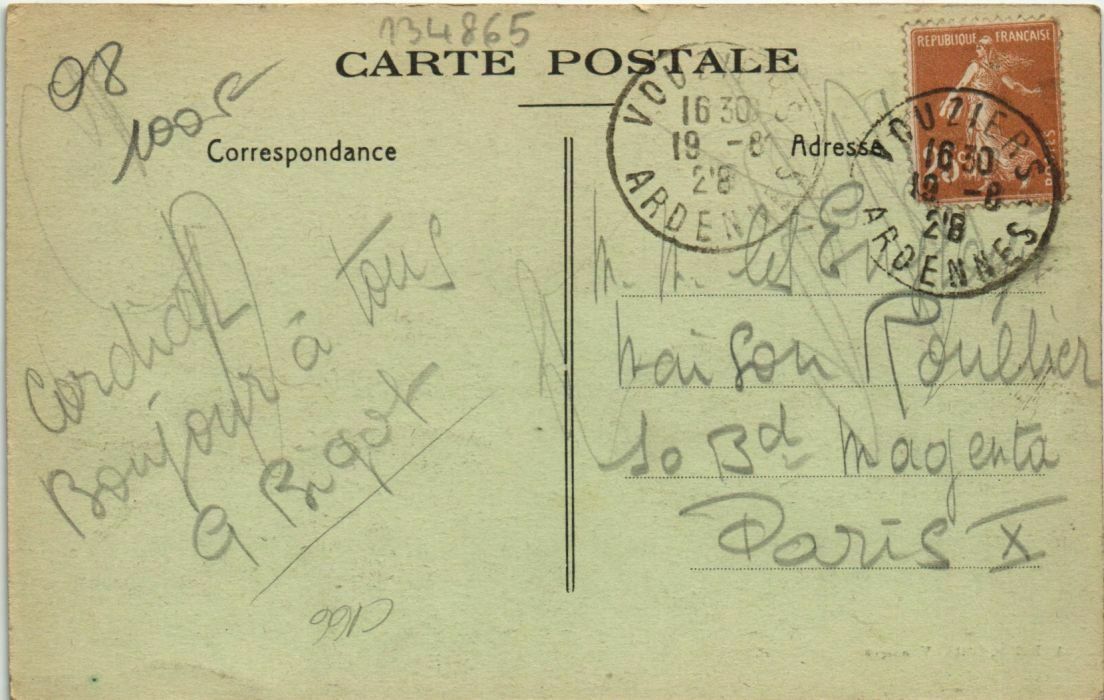 134865
CARTE POSTALE
98
100s
Correspondance
Adresse
REPUBLIQUE FRANÇAISE
25c
POSTES
VOUZIERS
16 30
19 -8
28
ARDENNES
VOUZIERS
16 30
19 -8
28
ARDENNES
Cordial
Bonjour à tous
G. Bigot
M. M. les
Maison Roullier
50 Bd Magenta
Paris X